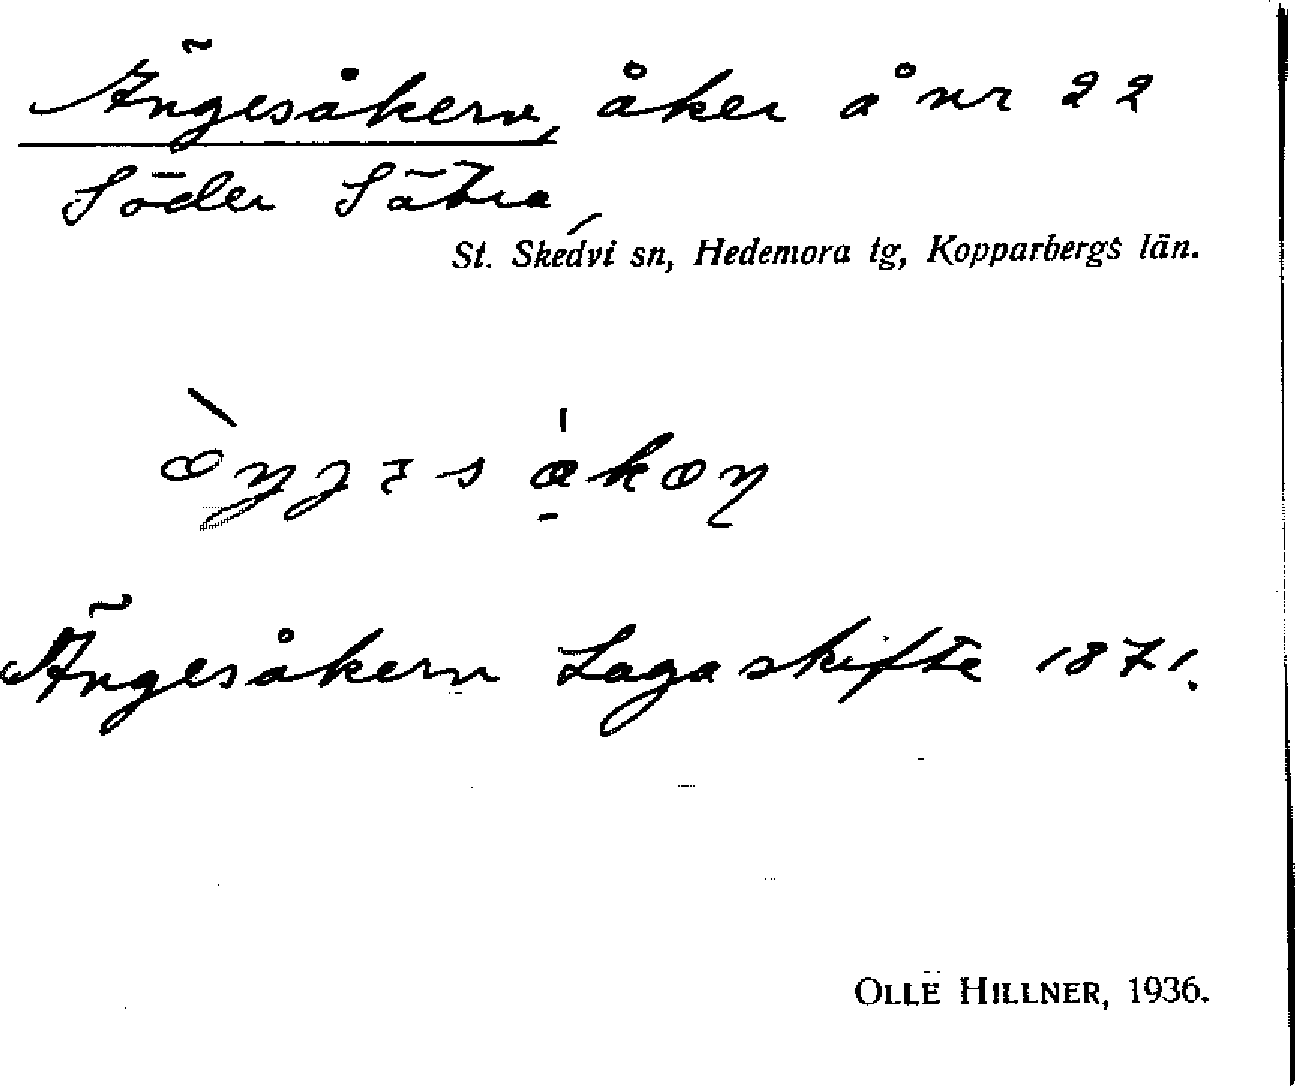 Ängesåkern, åker å nr 22
Söder Sätra,
St. Skedvi sn, Hedemora tg, Kopparbergs län.
Ängesåkern Laga skifte 1871.
OLLE HILLNER, 1936.